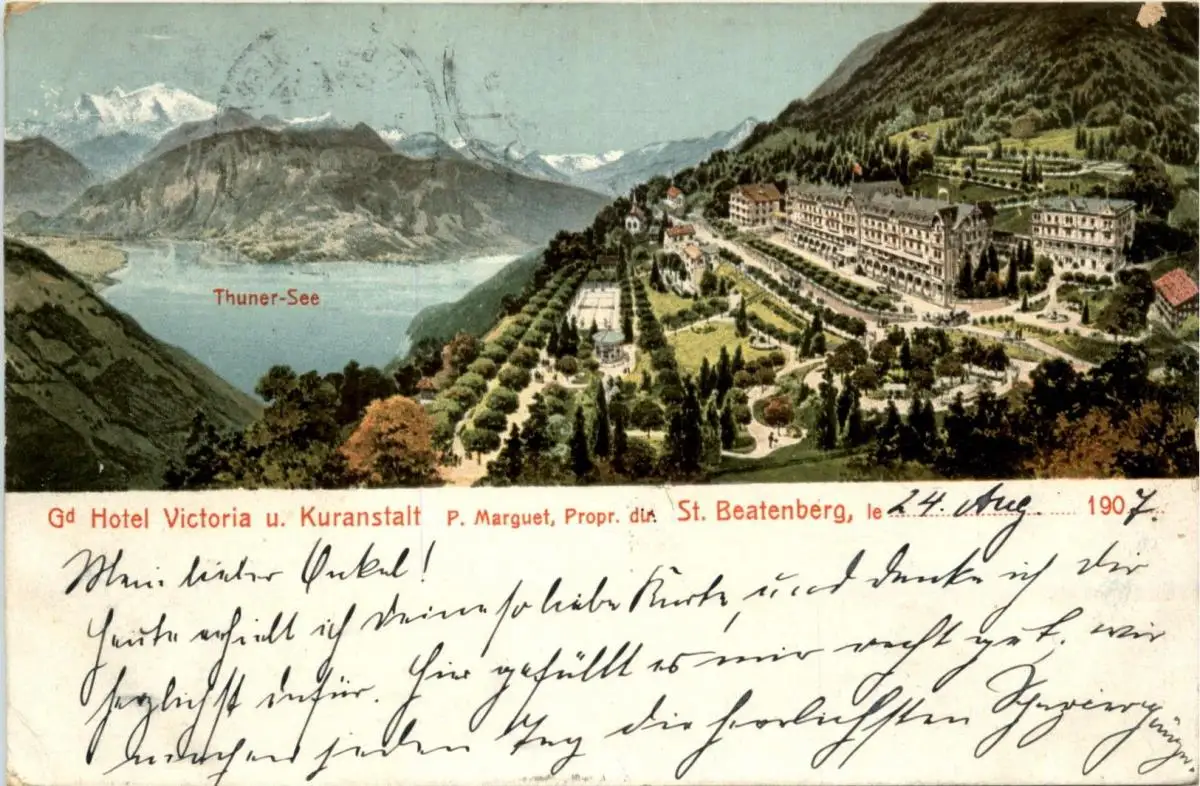 Thuner-See
Gd Hotel Victoria u. Kuranstalt P. Marguet, Propr. dir. St. Beatenberg, le 24. Aug. 1907.
Mein lieber Onkel!
Heute erhielt ich deine so liebe Karte, und danke ich dir
herzlichst dafür. Hier gefällt es mir recht gut, wir
machen jeden Tag die herrlichsten Spaziergänge.